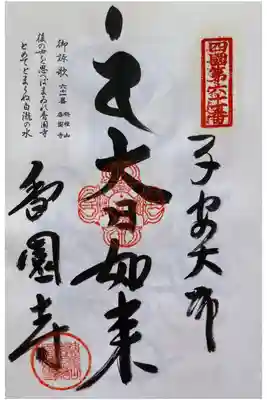 四國第六十一番
子安大師
大日如来
香園寺
御詠歌 六十一番
栴檀山
香園寺
後の世を思へばまゐれ香園寺
とめてとまらぬ白瀧の水